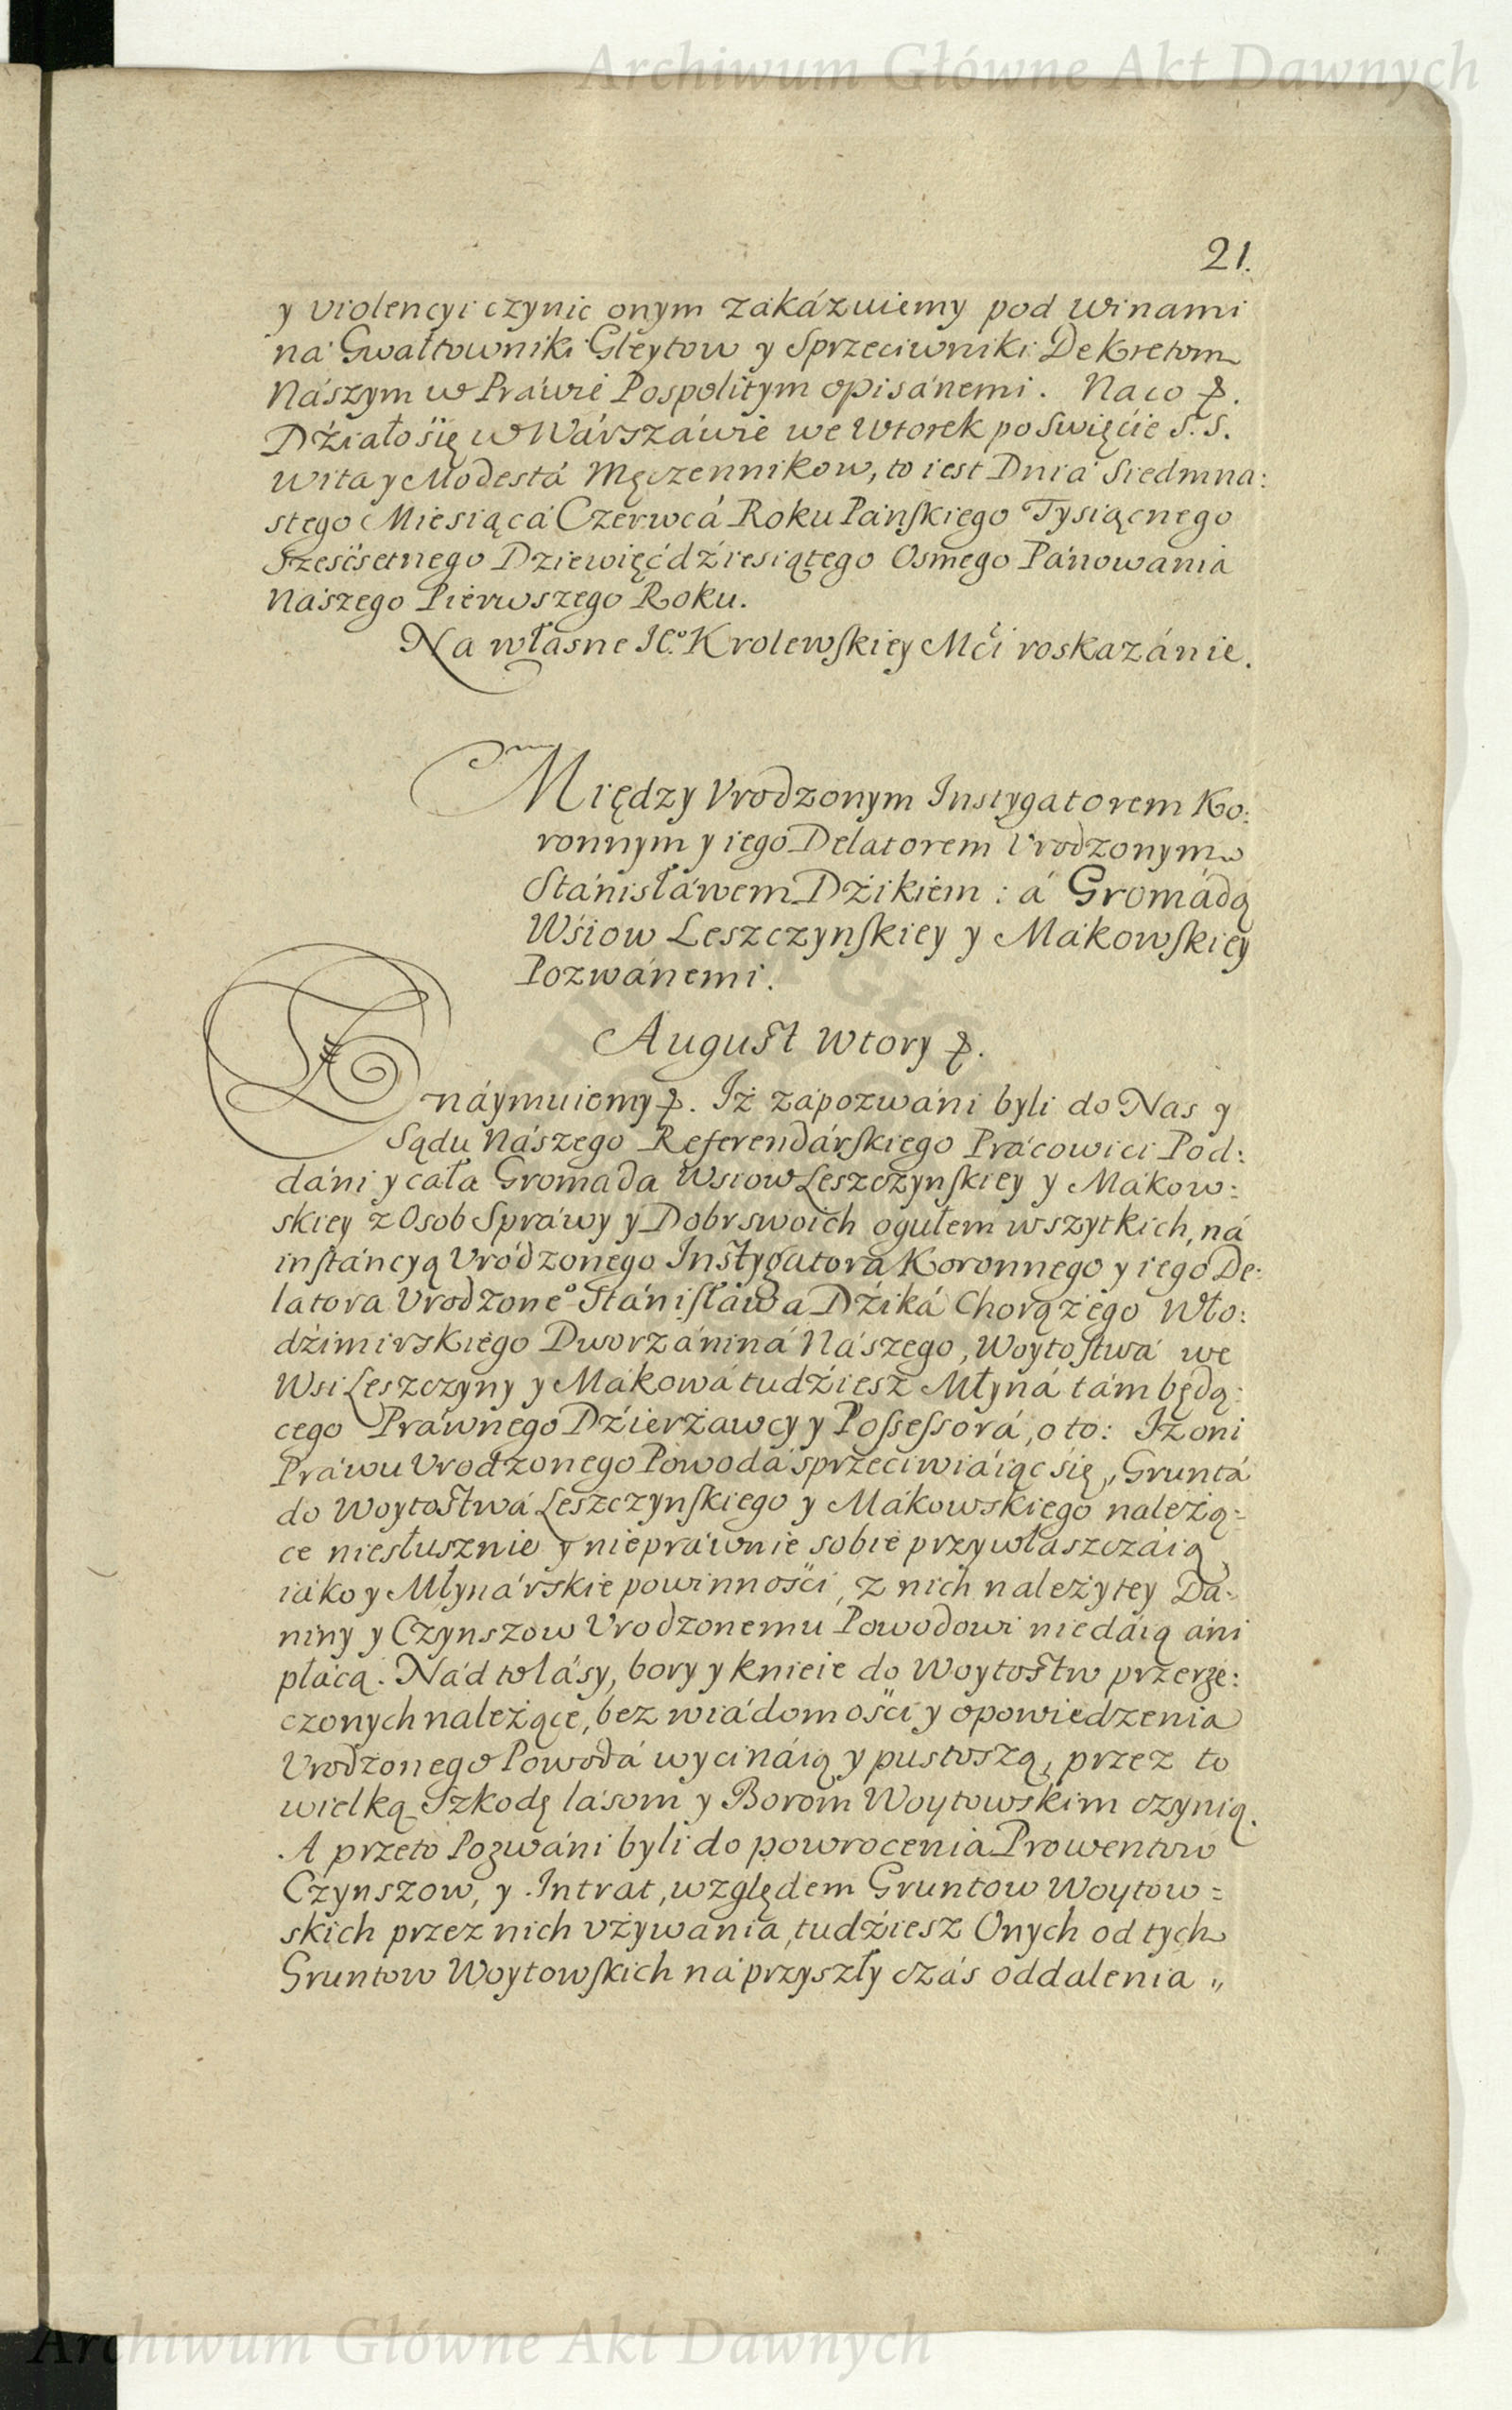 Archiwum Główne Akt Dawnych
21.
y violencyi czynic onym zakázuiemy pod winami
na Gwałtowniki Gleytow y Sprzeciwniki Dekretom
Nászym w Práwie Pospolitym opisánemi. Naco &.
Dźiało się w Wárszáwie we Wtorek po Swięcie S.S.
Wita y Modestá Męczennikow, to iest Dnia Siedmna:
stego Miesiącá Czerwcá Roku Pánskiego Tysiącnego
Szescsetnego Dziewięćdźiesiątego Osmego Pánowania
Nászego Pierwszego Roku.
Na własne JC.º Krolewskiey Mći roskazánie.
Między Vrodzonym Instygatorem Ko:
ronnym y iego Delatorem Vrodzonym
Stánisłáwem Dźikiem: á Gromádą
Wśiow Leszczynskiey y Mákowskiey
Pozwánemi.
August Wtory &.
Znáymuiemy &. Iż zápozwáni byli do Nas y
Sądu Nászego Referendárskiego Prácowici Pod:
dáni y cáła Gromada Wsiow Leszczynskiey y Mákow:
skiey z Osob Spráwy y Dobr swoich ogułem wszytkich, ná
instáncyą Vrodzonego Instygatorá Koronnego y iego De:
latora Vrodzoneº Stánisłáwa Dźiká Chorążego Wło:
dźimirskiego Dworzániná Nászego, Woytostwá we
Wsi Leszczyny y Mákowá tudźiesz Młyná tám będą:
cego Práwnego Dźierżawcy y Possessorá, o to: Iż oni
Práwu Vrodzonego Powodá sprzeciwiáiąc się, Gruntá
do Woytostwá Leszczynskiego y Mákowskiego należą=
ce niesłusznie y niepráwnie sobie przywłaszczáią,
iáko y Młynárskie powinności, z nich należytey Da-
niny y Czynszow Vrodzonemu Powodowi niedáią áni
płácą. Nád to lásy, bory y knieie do Woytostw przerze:
czonych należące, bez wiádomości y opowiedzenia
Vrodzonego Powodá wycináią y pustoszą, przez to
wielką Szkodę lásom y Borom Woytowskim czynią.
A przeto Pozwáni byli do powrocenia Prowentow
Czynszow, y Intrat, względem Gruntow Woytow=
skich przez nich vżywánia, tudźiesz Onych od tych
Gruntow Woytowskich ná przyszły czás oddalenia „
Archiwum Główne Akt Dawnych